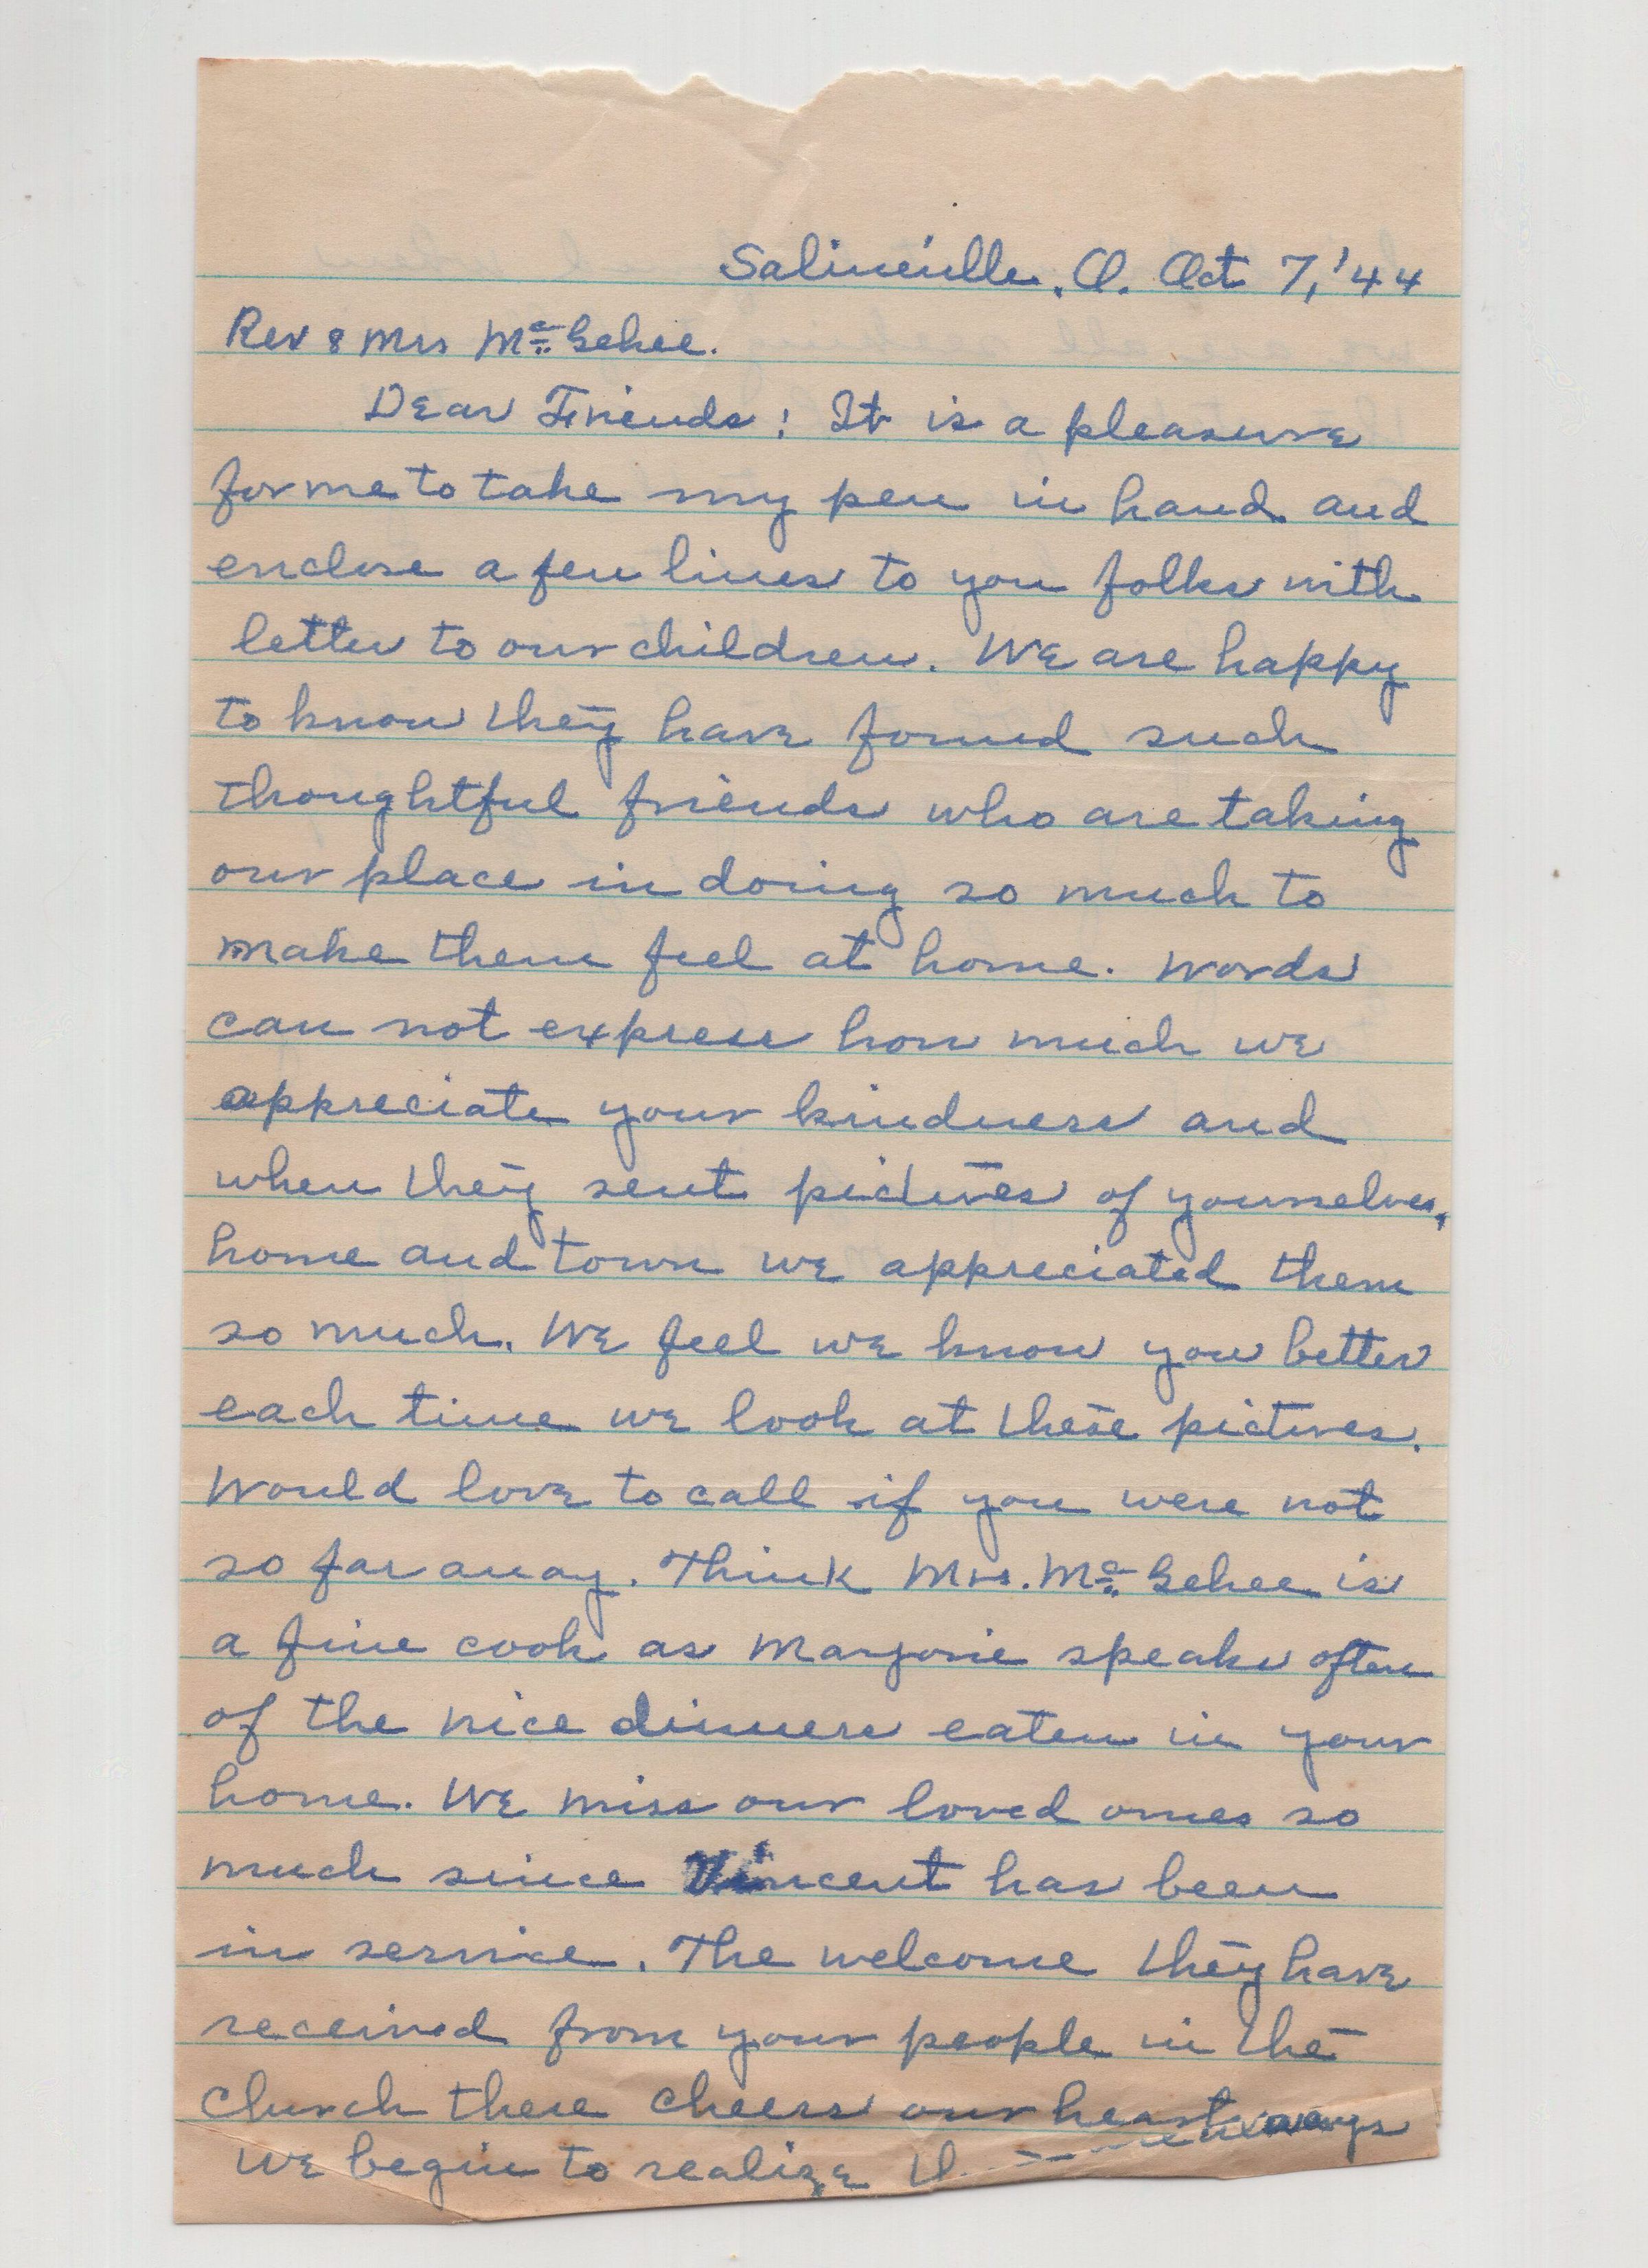 Salineville, O. Oct 7, '44
Rev & Mrs McGehee.
Dear Friends: It is a pleasure
for me to take my pen in hand and
enclose a few lines to you folks with
letter to our children. We are happy
to know they have found such
thoughtful friends who are taking
our place in doing so much to
make them feel at home. Words
can not express how much we
appreciate your kindness and
when they sent pictures of yourselves,
home and town we appreciated them
so much. We feel we know you better
each time we look at these pictures.
Would love to call if you were not
so far away. Think Mrs. McGehee is
a fine cook as Marjorie speaks often
of the nice dinners eaten in your
home. We miss our loved ones so
much since Vincent has been
in service. The welcome they have
received from your people in the
church there cheers our hearts
We begin to realize